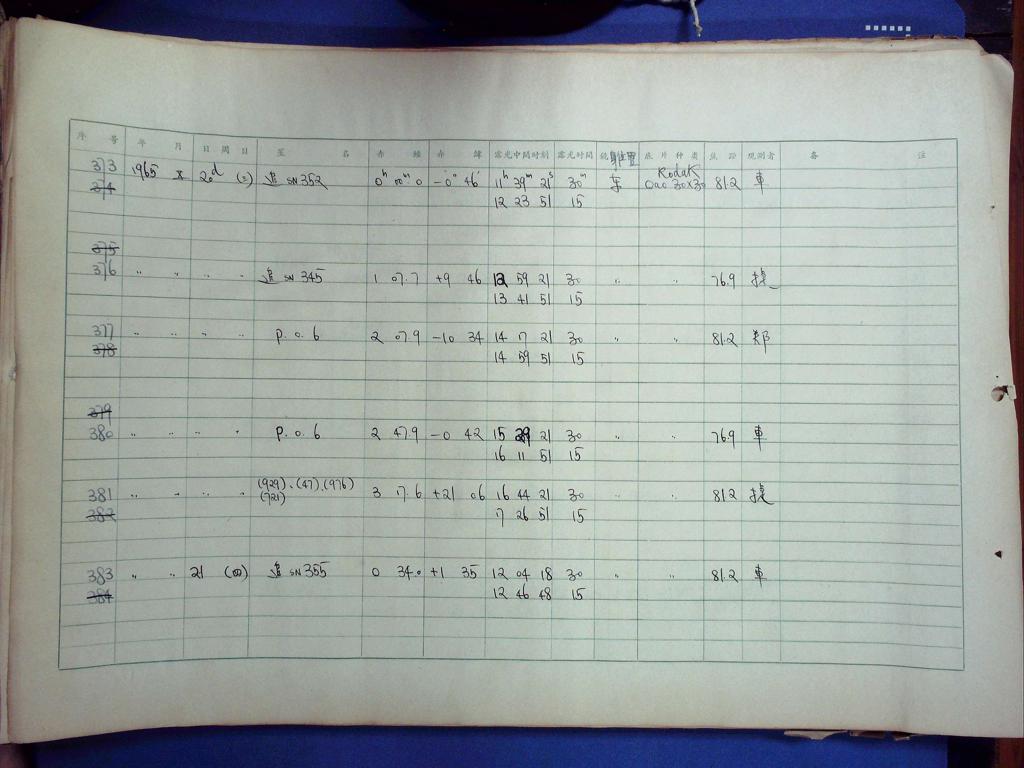 序号 年 月 日 周 日 星 名 赤 經 赤 緯 露光中間时刻 露光时间 位置 底片种类 焦距 观測者 备 注
373 1965 X 20d (三) 追 SN 352 0h 00m 0 -0° 46' 11h 39m 21s 30m 东 Kodak Oao 30x30 81.2 車
374 12 23 51 15
375
376 " " " " 追 SN 345 1 07.7 +9 46 12 59 21 30 " " 76.9 捷
13 41 51 15
377 " " " " P. O. 6 2 07.9 -10 34 14 17 21 30 " " 81.2 郑
378 14 59 51 15
379
380 " " " " P. O. 6 2 47.9 -0 42 15 29 21 30 " " 76.9 車
16 11 51 15
381 " " " " (929)、(47)、(976) 3 17.6 +21 06 16 44 21 30 " " 81.2 捷
382 (721) 17 26 51 15
383 " " 21 (四) 追 SN 355 0 34.0 +1 35 12 04 18 30 " " 81.2 車
384 12 46 48 15